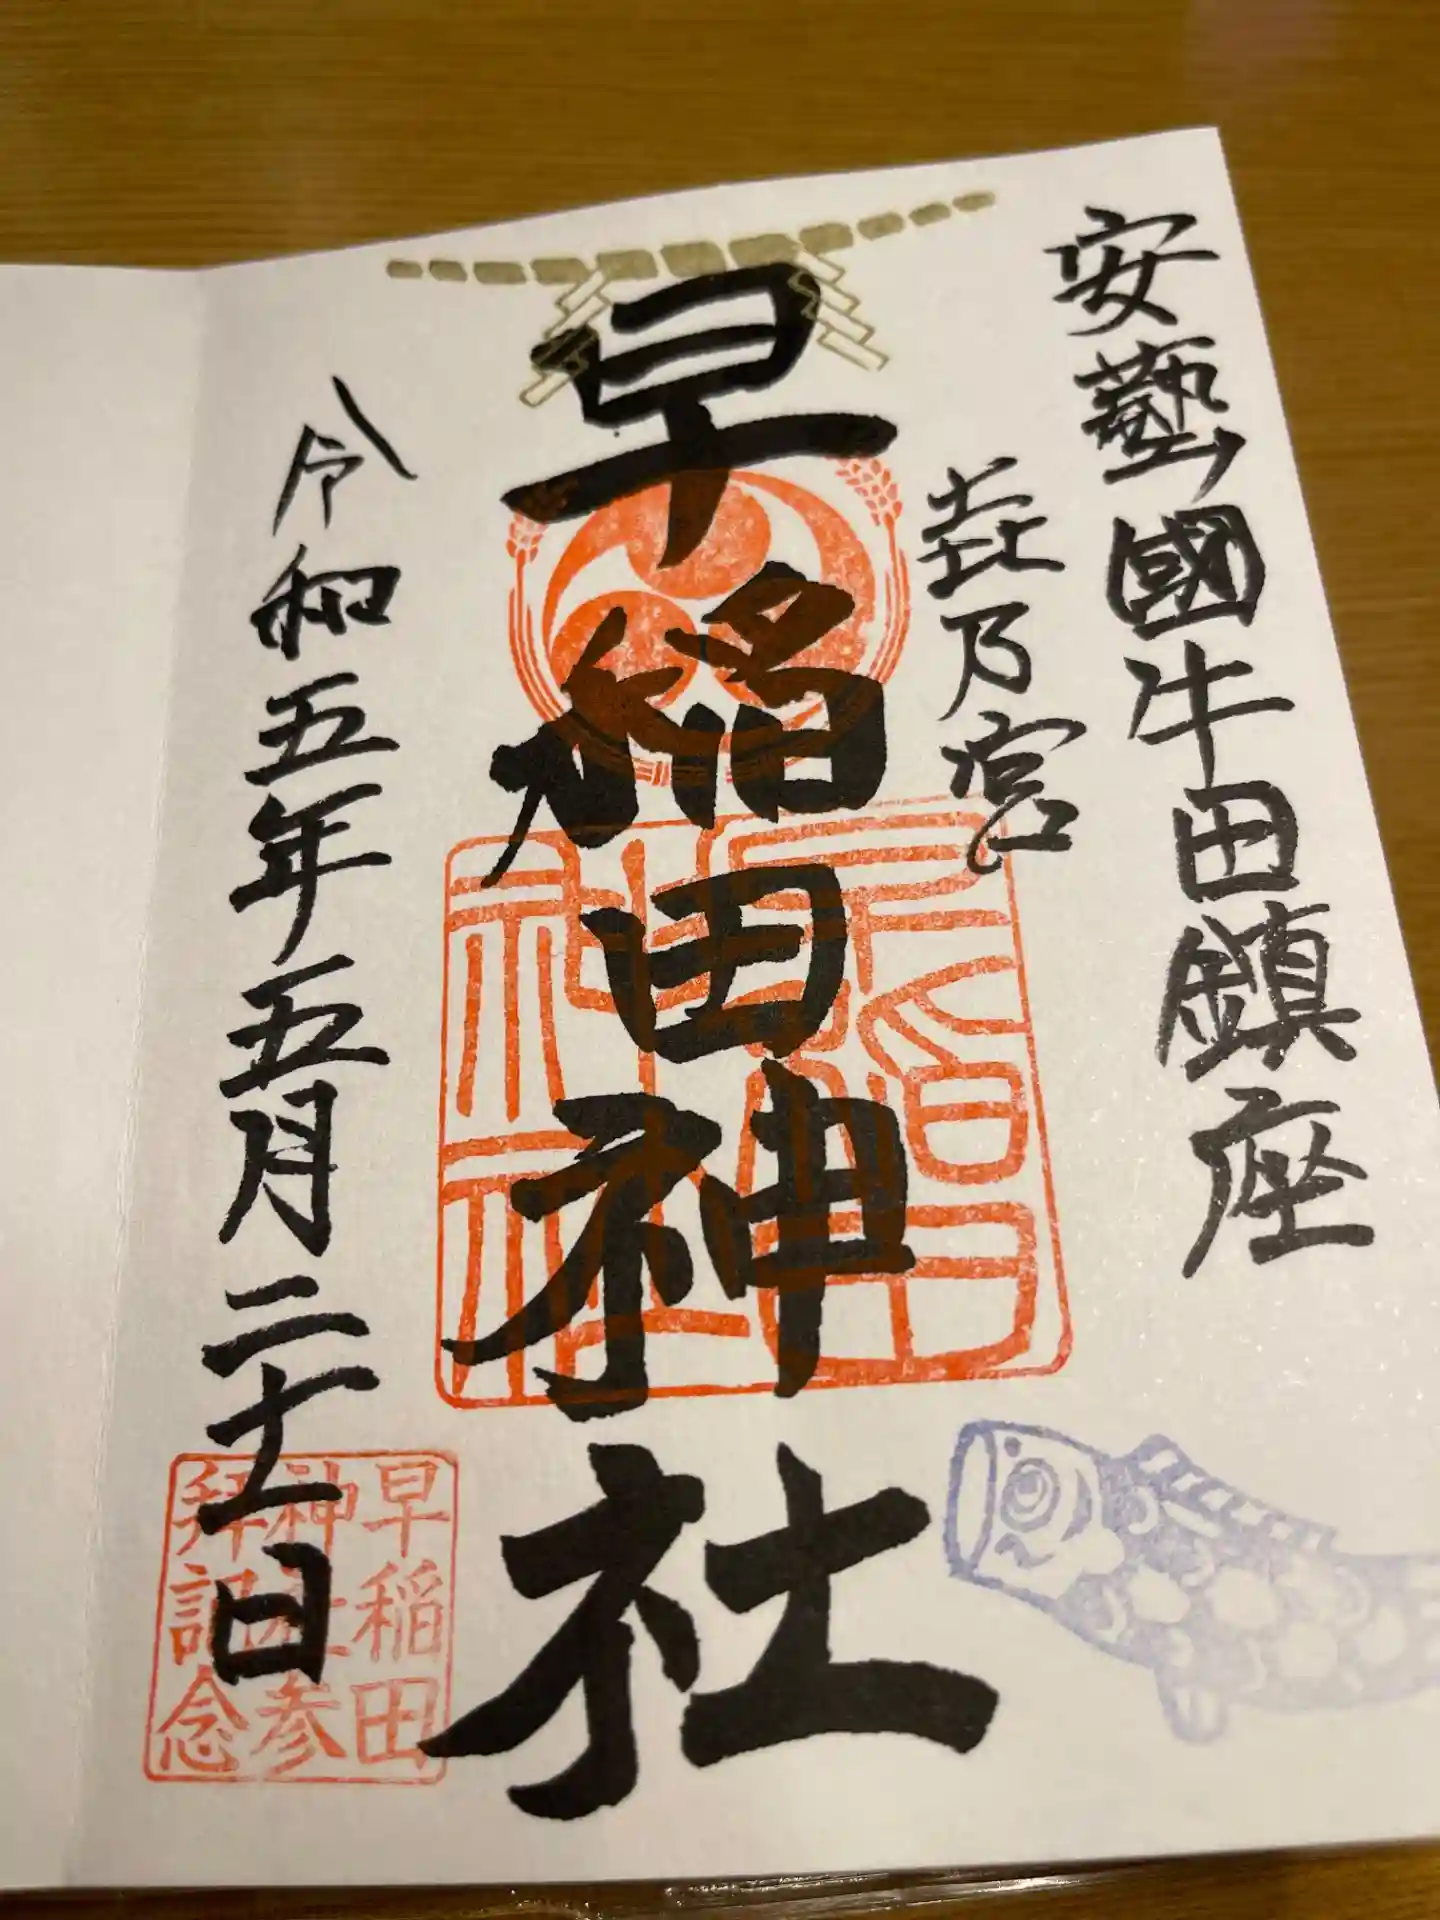 安藝國牛田鎮座
㐂乃宮
早稲田神社
令和五年五月二十一日
早稲田
神社
早稲田
神社参
拝記念